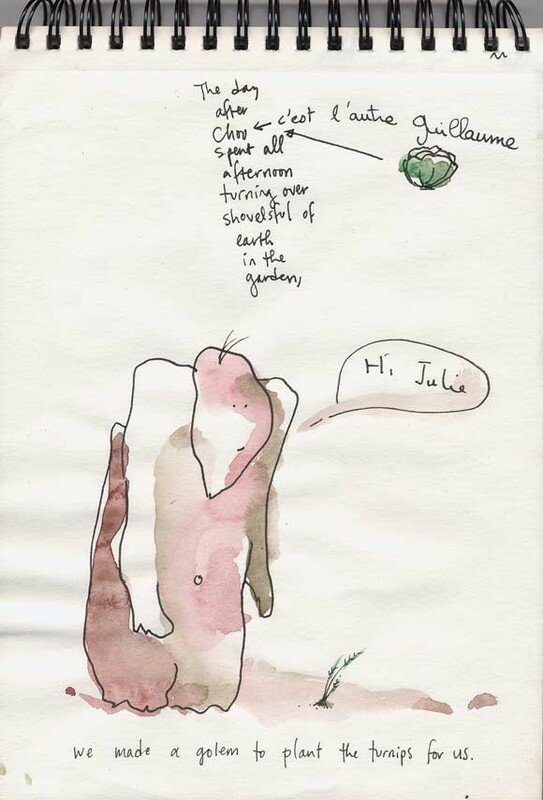 The day
after
Chou
c'est l'autre Guillaume
spent all
afternoon
turning over
shovelsful of
earth
in the
garden,
Hi, Julie
we made a golem to plant the turnips for us.